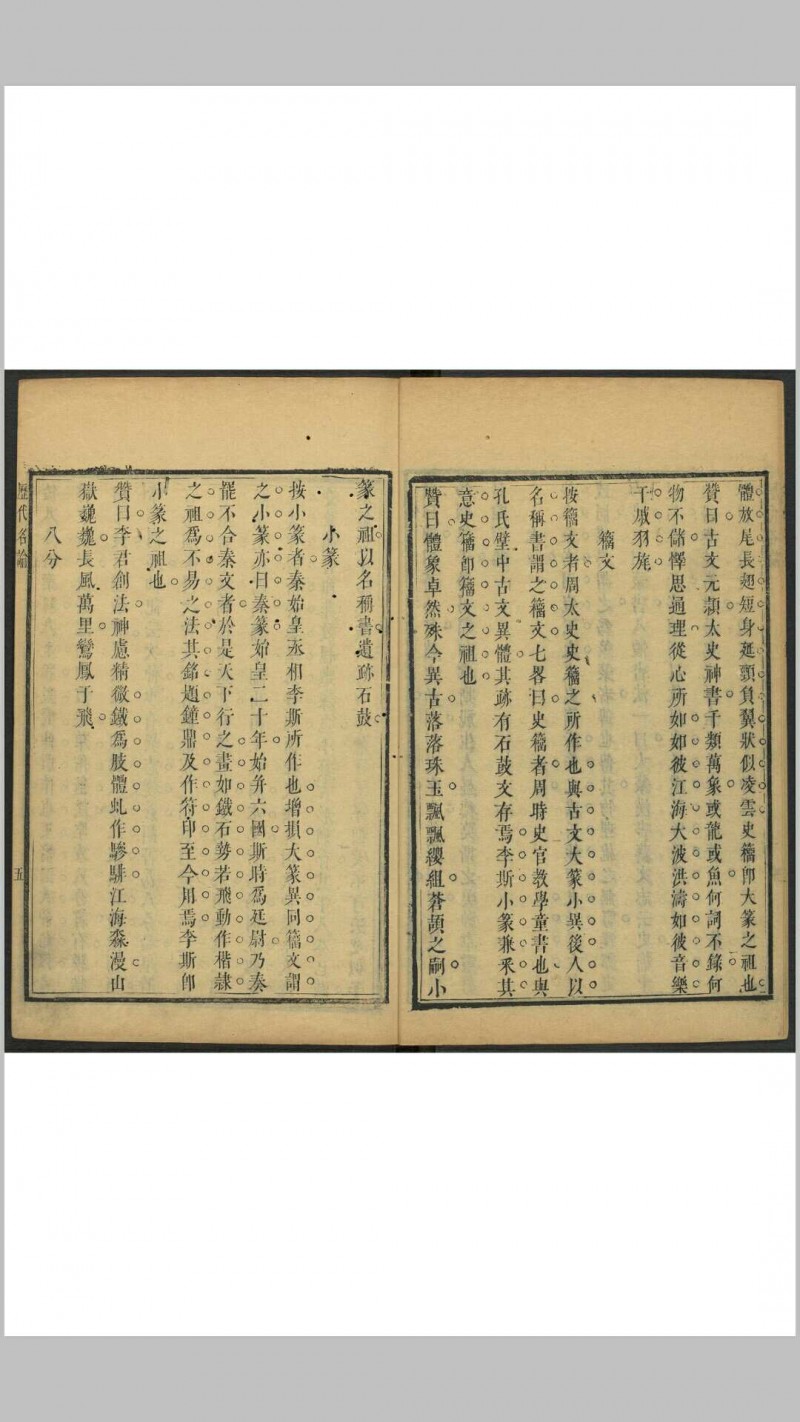 體放尾長翅短身延頸負翼狀似凌雲史籀卽大篆之祖也
贊曰古文元頴太史神書千類萬象或龍或魚何詞不錄何
物不儲懌思通理從心所如如彼江海大波洪濤如彼音樂
干戚羽旄
籀文
按籀文者周太史史籀之所作也與古文大篆小異後人以
名稱書謂之籀文七畧曰史籀者周時史官教學童書也與
孔氏壁中古文異體其跡有石鼓文存焉李斯小篆兼采其
意史籀卽籀文之祖也
贊曰體象卓然殊今異古落落珠玉飄飄纓組蒼頡之嗣小
篆之祖以名稱書遺跡石鼓
小篆
按小篆者秦始皇丞相李斯所作也增損大篆異同籀文謂
之小篆亦曰秦篆始皇二十年始并六國斯時爲廷尉乃奏
罷不合秦文者於是天下行之畫如鐵石勢若飛動作楷隸
之祖爲不易之法其銘題鐘鼎及作符印至今用焉李斯卽
小篆之祖也
贊曰李君創法神慮精微鐵爲肢體虬作驂騑江海淼漫山
嶽巍巍長風萬里鸞鳳于飛
八分
歷代名論
五